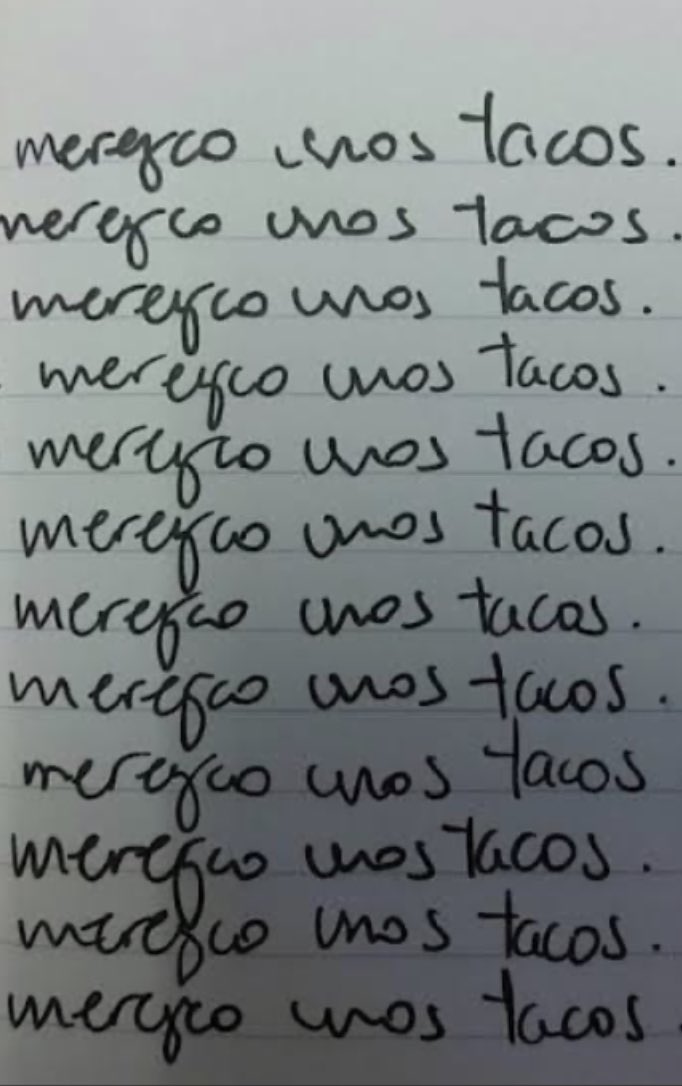 merezco unos tacos.
merezco unos tacos.
merezco unos tacos.
merezco unos tacos.
merezco unos tacos.
merezco unos tacos.
merezco unos tacos.
merezco unos tacos.
merezco unos tacos
merezco unos tacos.
merezco unos tacos.
merezco unos tacos.